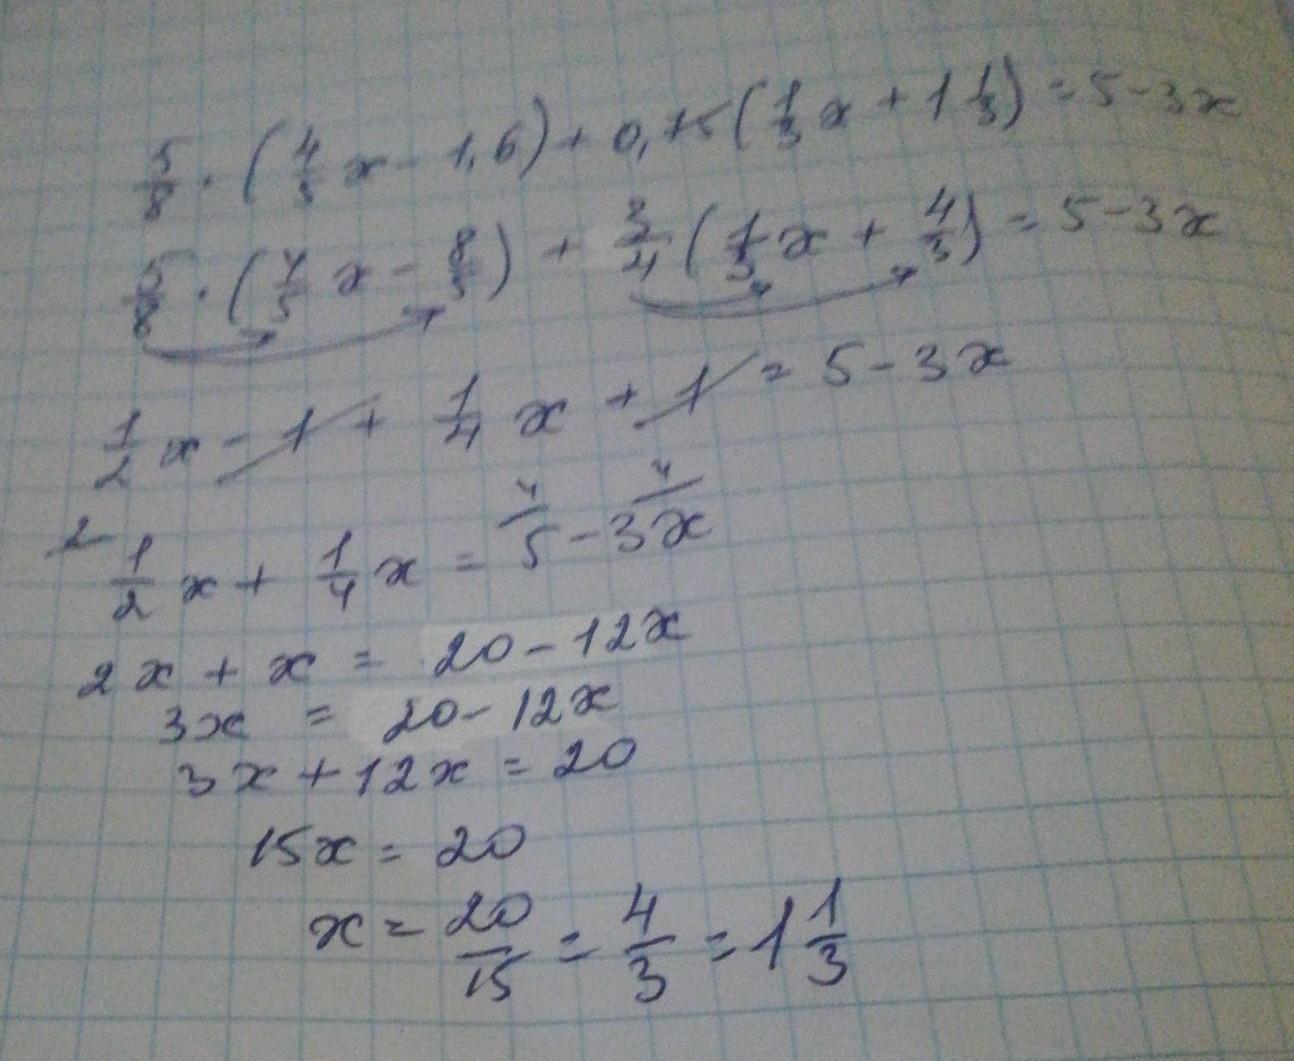 5/8 · (4/5 x - 1,6) + 0,75 (1/3 x + 1 1/3) = 5 - 3x
5/8 · (4/5 x - 8/5) + 3/4 (1/3 x + 4/3) = 5 - 3x
1/2 x - 1 + 1/4 x + 1 = 5 - 3x
2 4 4
1/2 x + 1/4 x = 5 - 3x
2x + x = 20 - 12x
3x = 20 - 12x
3x + 12x = 20
15x = 20
x = 20/15 = 4/3 = 1 1/3